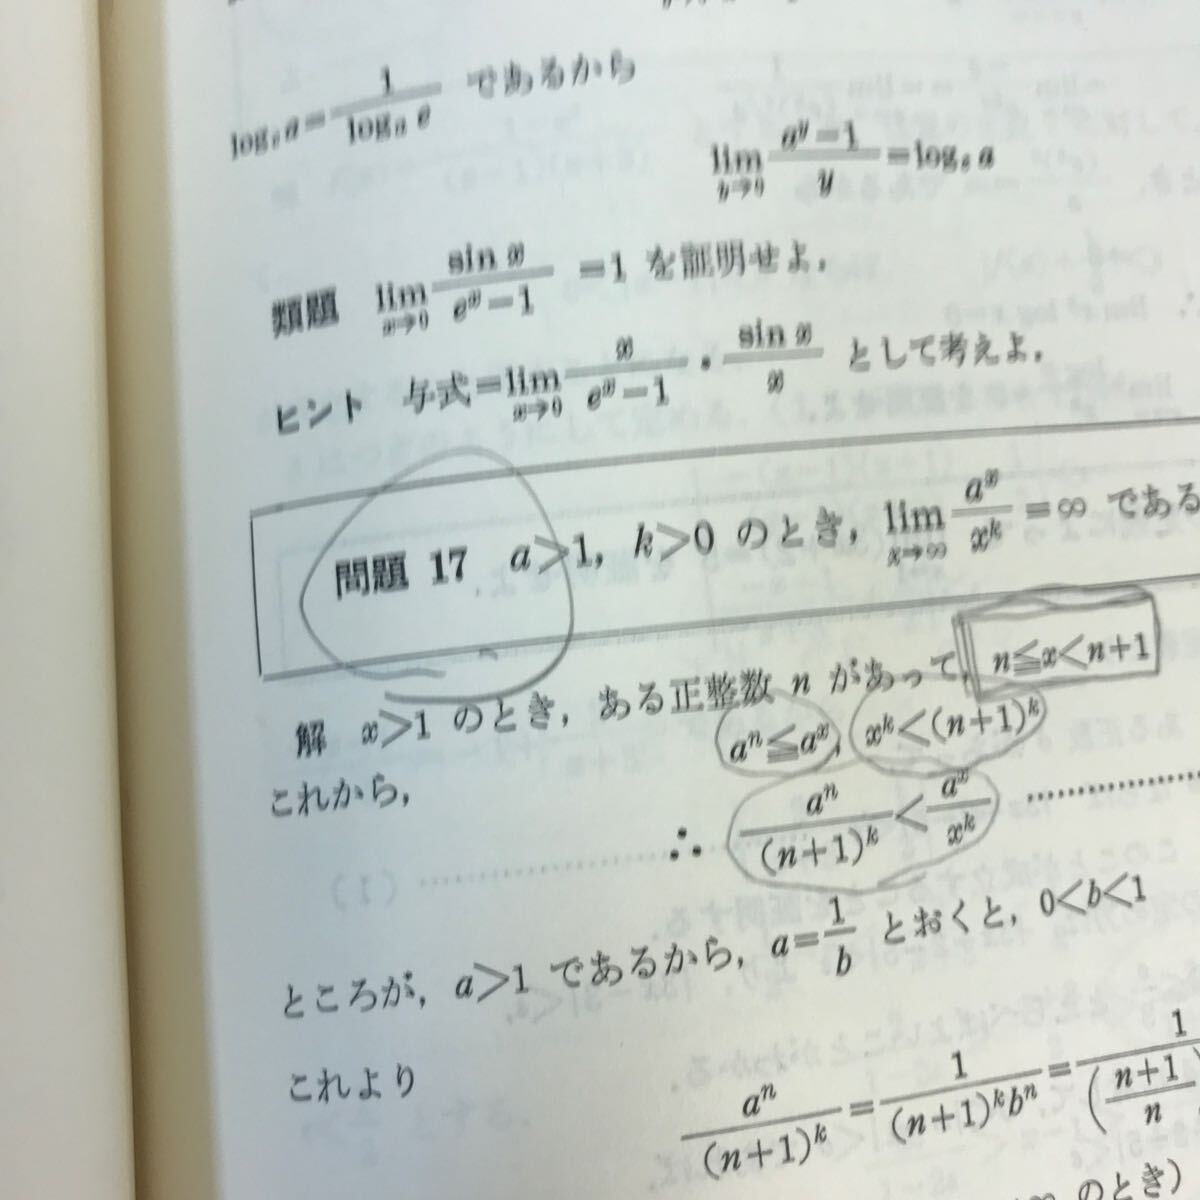 log_e a = 1/log_a e であるから
lim_{y→0} (a^y−1)/y = log_e a
類題 lim_{x→0} sin x/(e^x−1) =1 を証明せよ.
ヒント 与式=lim_{x→0} x/(e^x−1)・sin x/x として考えよ.
問題 17 a>1, k>0 のとき, lim_{x→∞} a^x/x^k =∞ である
解 x>1 のとき, ある正整数 n があって, n≦x<n+1
これから, a^n≦a^x, x^k<(n+1)^k
∴ a^n/(n+1)^k < a^x/x^k …………
ところが, a>1 であるから, a=1/b とおくと, 0<b<1
これより
a^n/(n+1)^k = 1/((n+1)^k b^n) = 1/((n+1)/n)
のとき)